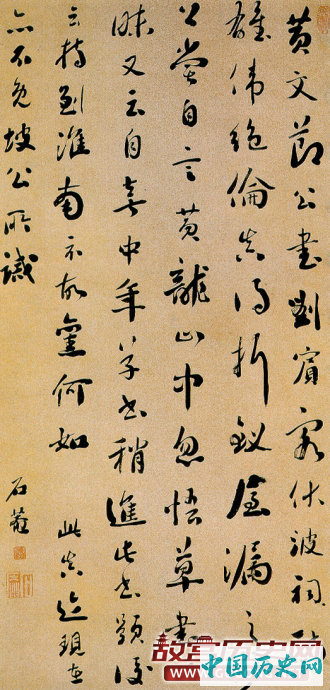 黃文節公書劉賓客伏波祠詩
雄偉絕倫真得折釵屋漏之
公嘗自言黃龍山中忽悟草書
昧又云自喜中年字書稍進此書題後
云持到淮南示故舊何如 此真迹現在
亦不免坡公所譏
石菴
故宫历史网
中国历史网